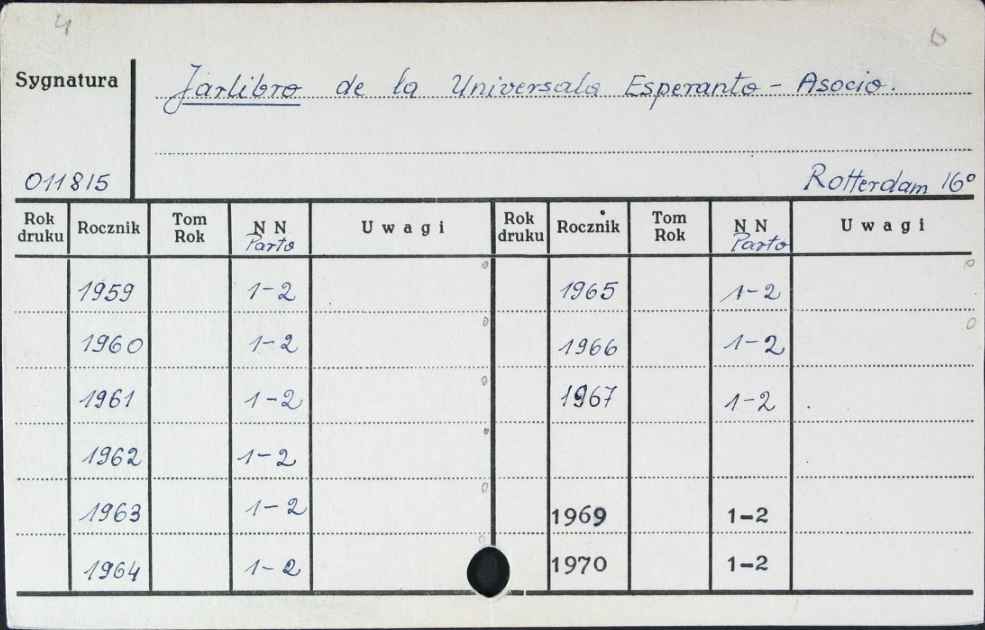 4 6
Sygnatura
Jarlibro de la Universala Esperanto - Asocio.
011815
Rotterdam 16°
Rok druku Rocznik Tom Rok N N Parto Uwagi Rok druku Rocznik Tom Rok N N Parto Uwagi
1959 1-2 1965 1-2
1960 1-2 1966 1-2
1961 1-2 1967 1-2
1962 1-2
1963 1-2 1969 1-2
1964 1-2 1970 1-2